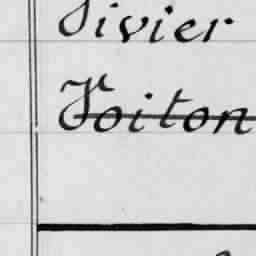 Vivier
Voiton